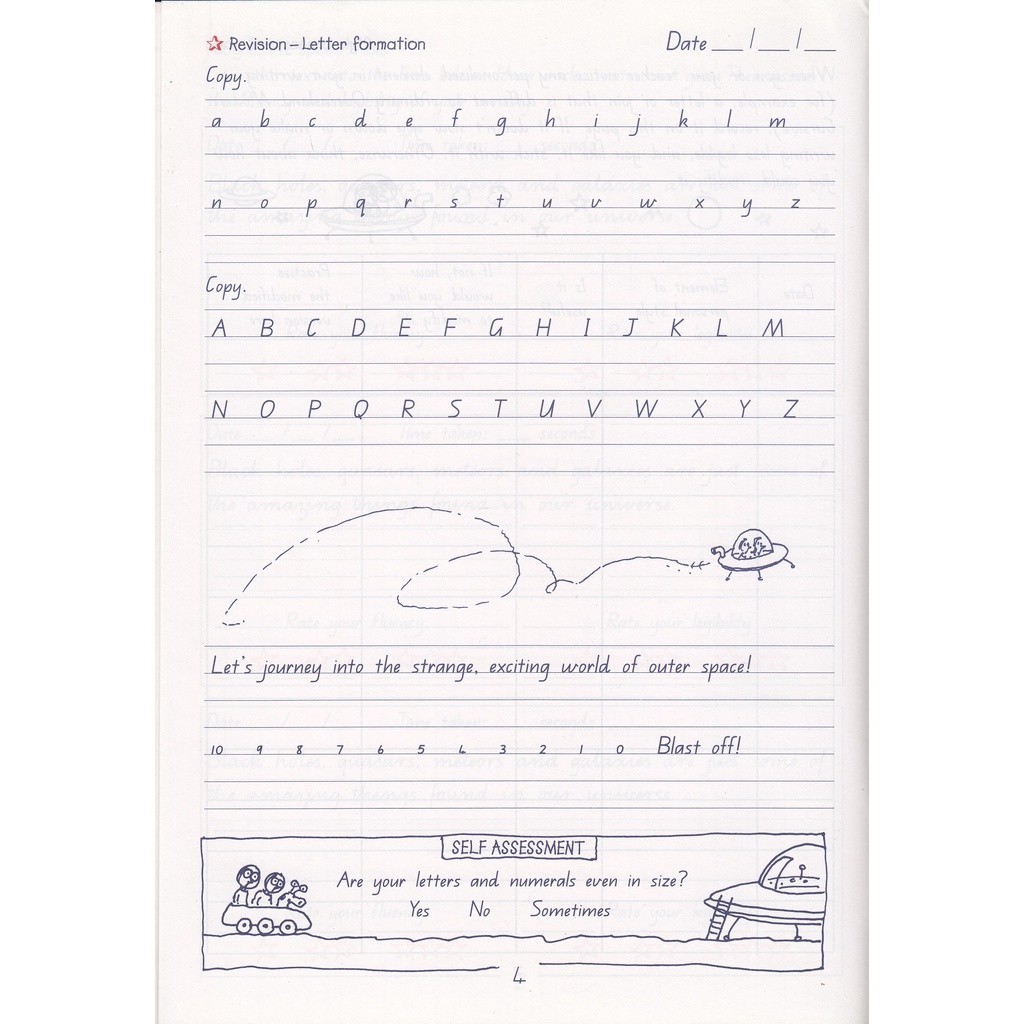 Revision – Letter formation
Date __ / __ / __
Copy.
a b c d e f g h i j k l m
n o p q r s t u v w x y z
Copy.
A B C D E F G H I J K L M
N O P Q R S T U V W X Y Z
Let's journey into the strange, exciting world of outer space!
10 9 8 7 6 5 4 3 2 1 0 Blast off!
SELF ASSESSMENT
Are your letters and numerals even in size?
Yes No Sometimes
4